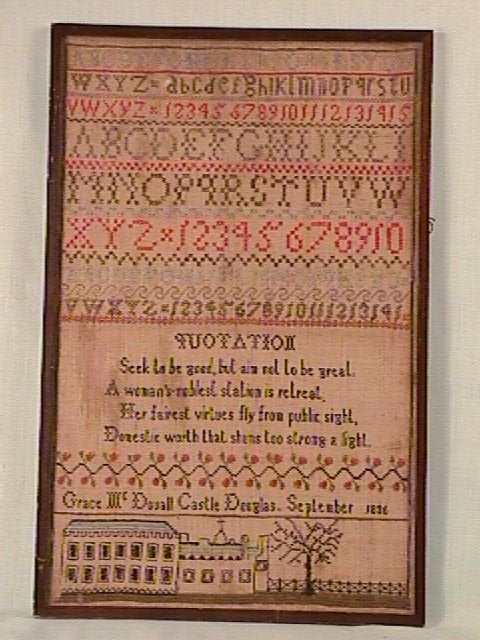 ABCDEFGHIJKLMNOPQRSTU
WXYZ abcdefghiklmnopqrstu
VWXYZ 1 2 3 4 5 6 7 8 9 10 11 12 13 14 15
ABCDEFGHIJKL
MNOPQRSTUVW
XYZ 1 2 3 4 5 6 7 8 9 10
VWXYZ 1 2 3 4 5 6 7 8 9 10 11 12 13 14
QUOTATION
Seek to be good, but aim not to be great.
A woman's noblest station is retreat,
Her fairest virtues fly from public sight,
Domestic worth that shuns too strong a light.
Grace Mc Douall Castle Douglas. September